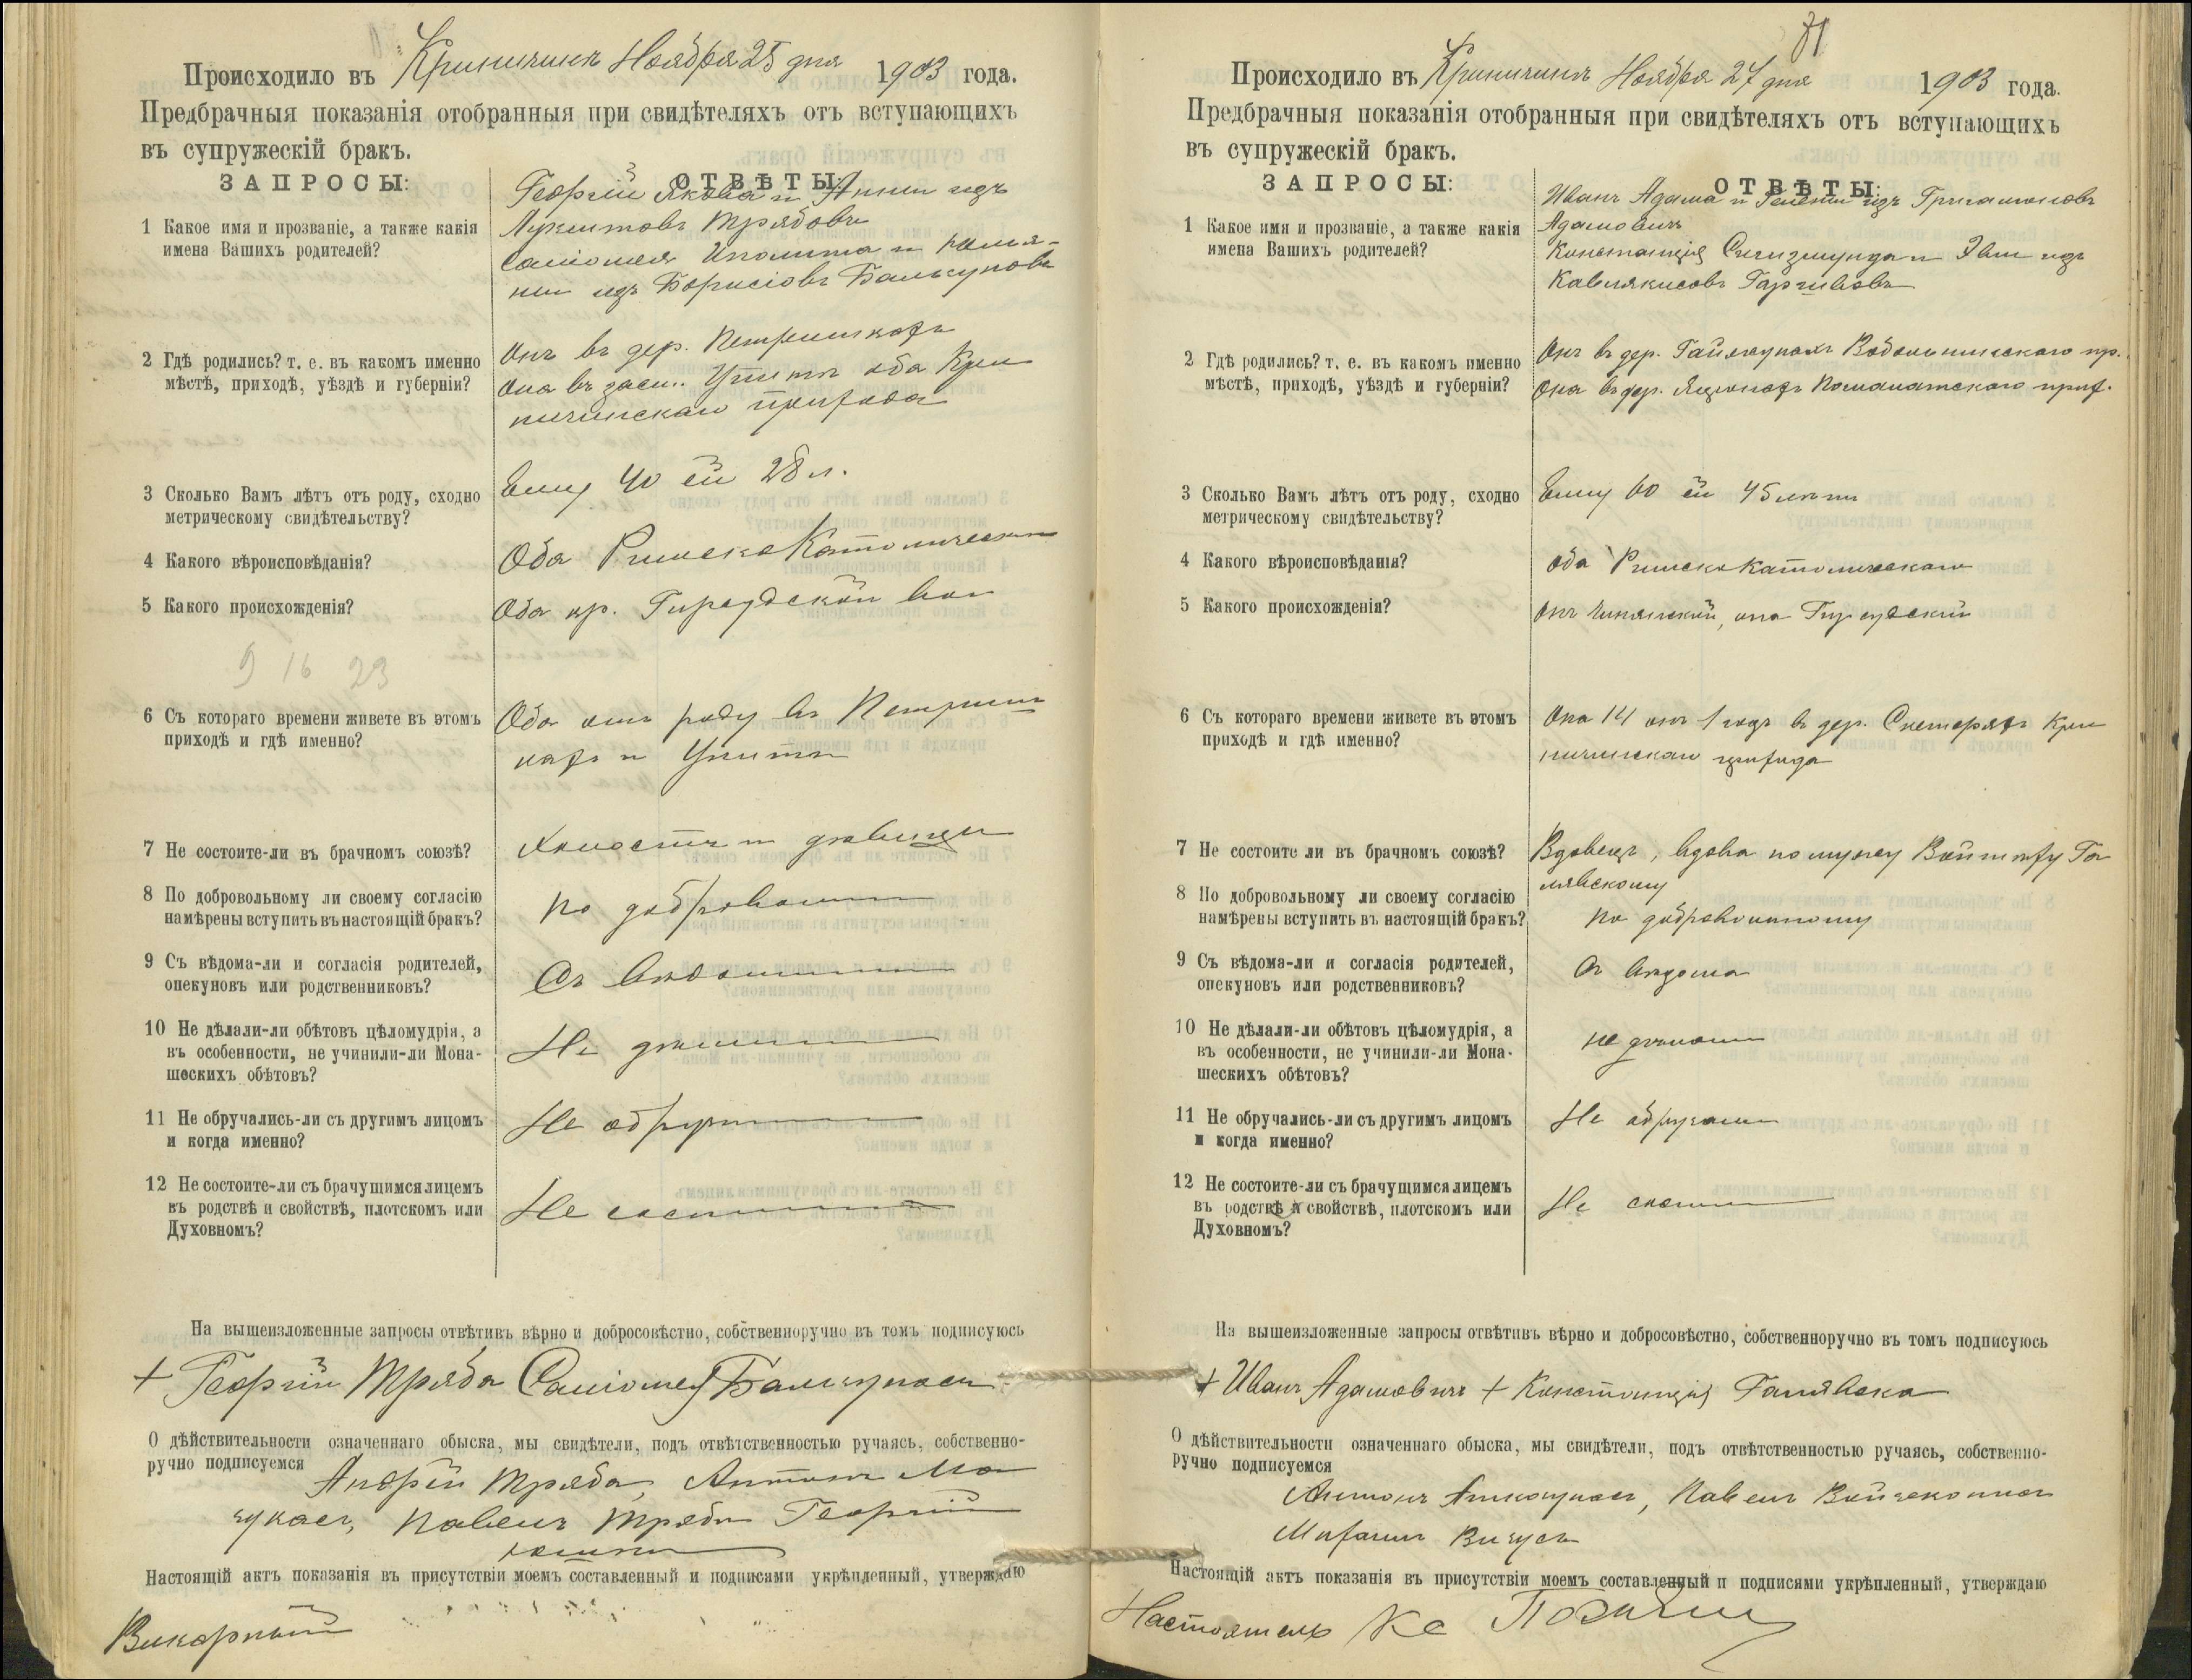 Происходило въ Криничинѣ Ноября 25 дня 1903 года.
Предбрачныя показанія отобранныя при свидѣтеляхъ отъ вступающихъ
въ супружескій бракъ.
ЗАПРОСЫ:
ОТВѢТЫ:
1 Какое имя и прозваніе, а также какія
имена Вашихъ родителей?
Георгій Якова и Анны изъ
Трябовъ
Саломея Иполита
изъ Борисовъ Бальсунов
2 Гдѣ родились? т. е. въ какомъ именно
мѣстѣ, приходѣ, уѣздѣ и губерніи?
Онъ въ дер. Петришкахъ
Она въ заст. Упитъ оба Кри
ничинскаго прихода
3 Сколько Вамъ лѣтъ отъ роду, сходно
метрическому свидѣтельству?
Ему 40 ей 28 л.
4 Какого вѣроисповѣданія?
Оба РимскоКатолическаго
5 Какого происхожденія?
Оба кр. Гирсудской вол
9 16 23
6 Съ котораго времени живете въ этомъ
приходѣ и гдѣ именно?
Оба отъ роду въ Петриш
кахъ и Упитъ
7 Не состоите-ли въ брачномъ союзѣ?
Холостъ и дѣвица
8 По добровольному ли своему согласію
намѣрены вступить въ настоящій бракъ?
По доброволь
9 Съ вѣдома-ли и согласія родителей,
опекуновъ или родственниковъ?
Съ вѣдома
10 Не дѣлали-ли обѣтовъ цѣломудрія, а
въ особенности, не учинили-ли Мона-
шескихъ обѣтовъ?
Не дѣлали
11 Не обручались-ли съ другимъ лицомъ
и когда именно?
Не обруч
12 Не состоите-ли съ брачущимся лицемъ
въ родствѣ и свойствѣ, плотскомъ или
Духовномъ?
Не состоим
На вышеизложенные запросы отвѣтивъ вѣрно и добросовѣстно, собственноручно въ томъ подписуюсь
+ Георгій Тряба Саломея Бальсунасъ
О дѣйствительности означеннаго обыска, мы свидѣтели, подъ отвѣтственностью ручаясь, собственно-
ручно подписуемся
Андрей Тряба, Антонъ Ма
чукасъ, Павелъ Тряба Георгій
Настоящій актъ показанія въ присутствіи моемъ составленный и подписями укрѣпленный, утверждаю
Викарный
31
Происходило въ Криничинѣ Ноября 27 дня 1903 года.
Предбрачныя показанія отобранныя при свидѣтеляхъ отъ вступающихъ
въ супружескій бракъ.
ЗАПРОСЫ:
ОТВѢТЫ:
1 Какое имя и прозваніе, а также какія
имена Вашихъ родителей?
Иванъ Адама и Гелены изъ
Адамовичъ
Констанція Сигизмунда и Эвы изъ
2 Гдѣ родились? т. е. въ какомъ именно
мѣстѣ, приходѣ, уѣздѣ и губерніи?
Онъ въ дер. Гайлюнахъ Вобольникскаго пр.
Она въ дер. Яцюнахъ прих.
3 Сколько Вамъ лѣтъ отъ роду, сходно
метрическому свидѣтельству?
Ему 60 ей 45 лѣтъ
4 Какого вѣроисповѣданія?
Оба РимскоКатолическаго
5 Какого происхожденія?
Онъ, она Гирсудской
6 Съ котораго времени живете въ этомъ
приходѣ и гдѣ именно?
Она 14 онъ 1 годъ въ дер. Скеторяхъ Кри
ничинскаго прихода
7 Не состоите ли въ брачномъ союзѣ?
Вдовецъ, вдова по мужу Войтѣху Га
лявскому
8 По добровольному ли своему согласію
намѣрены вступить въ настоящій бракъ?
По добровольному
9 Съ вѣдома-ли и согласія родителей,
опекуновъ или родственниковъ?
Съ вѣдома
10 Не дѣлали-ли обѣтовъ цѣломудрія, а
въ особенности, не учинили-ли Мона-
шескихъ обѣтовъ?
Не дѣлали
11 Не обручались-ли съ другимъ лицомъ
и когда именно?
Не обручали
12 Не состоите-ли съ брачущимся лицемъ
въ родствѣ и свойствѣ, плотскомъ или
Духовномъ?
Не состоим
На вышеизложенные запросы отвѣтивъ вѣрно и добросовѣстно, собственноручно въ томъ подписуюсь
+ Иванъ Адамовичъ + Констанція Галявска
О дѣйствительности означеннаго обыска, мы свидѣтели, подъ отвѣтственностью ручаясь, собственно-
ручно подписуемся
Антонъ, Павелъ
Михаилъ Вичусъ
Настоящій актъ показанія въ присутствіи моемъ составленный и подписями укрѣпленный, утверждаю
Настоятель Кс